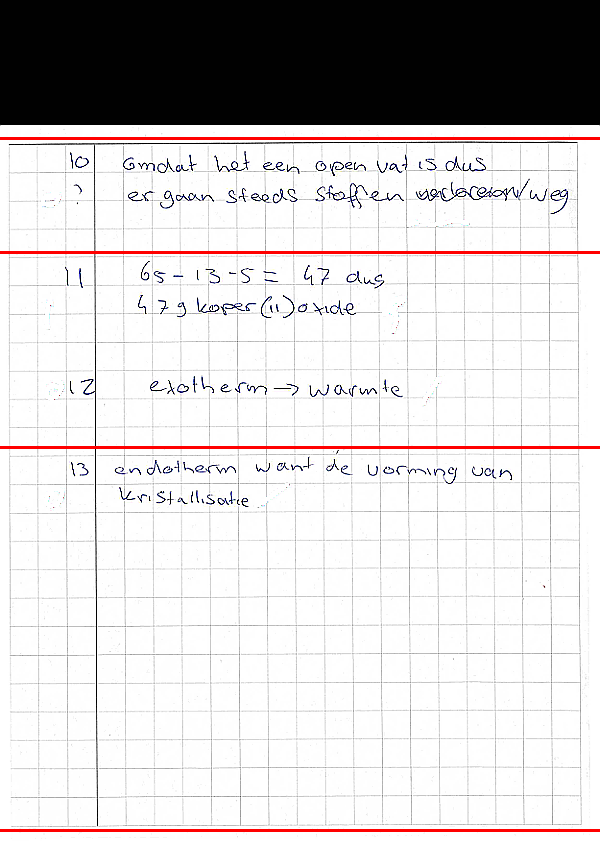 10 Omdat het een open vat is dus
? er gaan steeds stoffen /weg
11 65 - 13 - 5 = 47 dus
47 g koper(II)oxide
12 exotherm → warmte
13 endotherm want de vorming van
kristallisatie